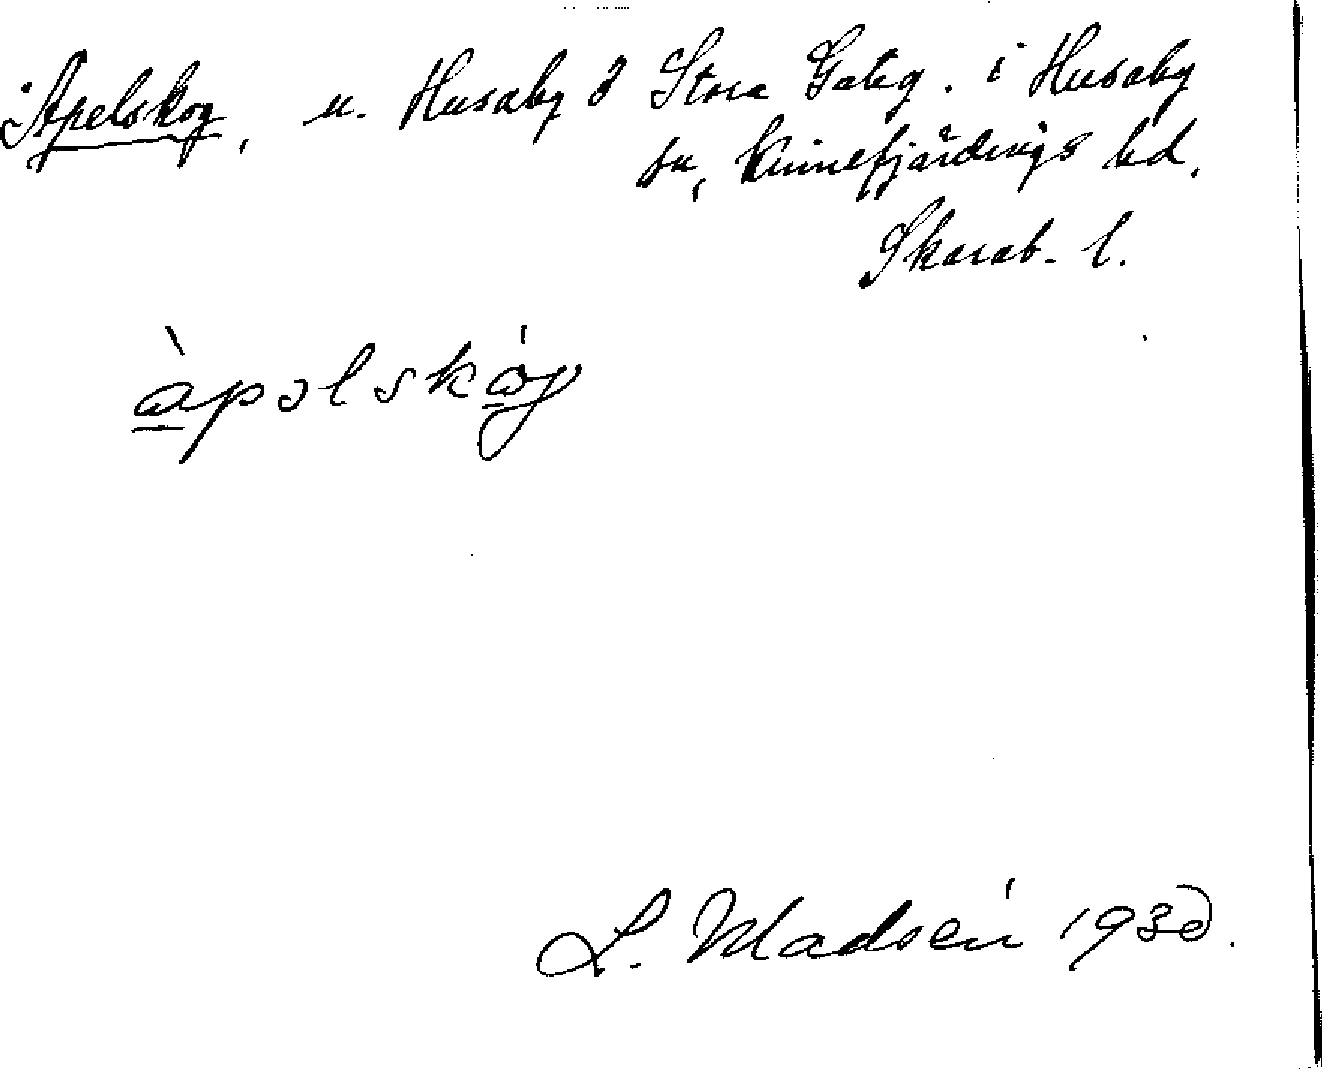 Apelskog, u. Husaby o Stora Gateg. i Husaby
sn, Kinnefjärdings hd.
Skarab. l.
àpəlskóg
L. Madsén 1930.